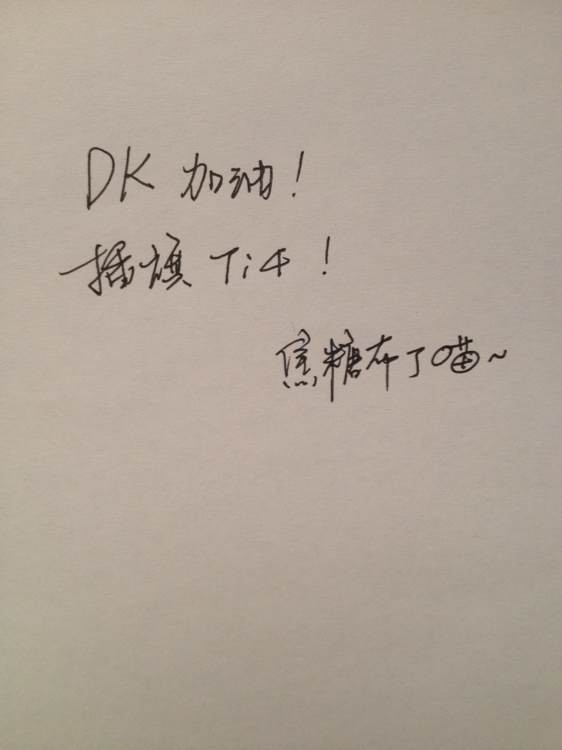 DK 加油！
插旗 Ti4！
焦糖布丁喵~